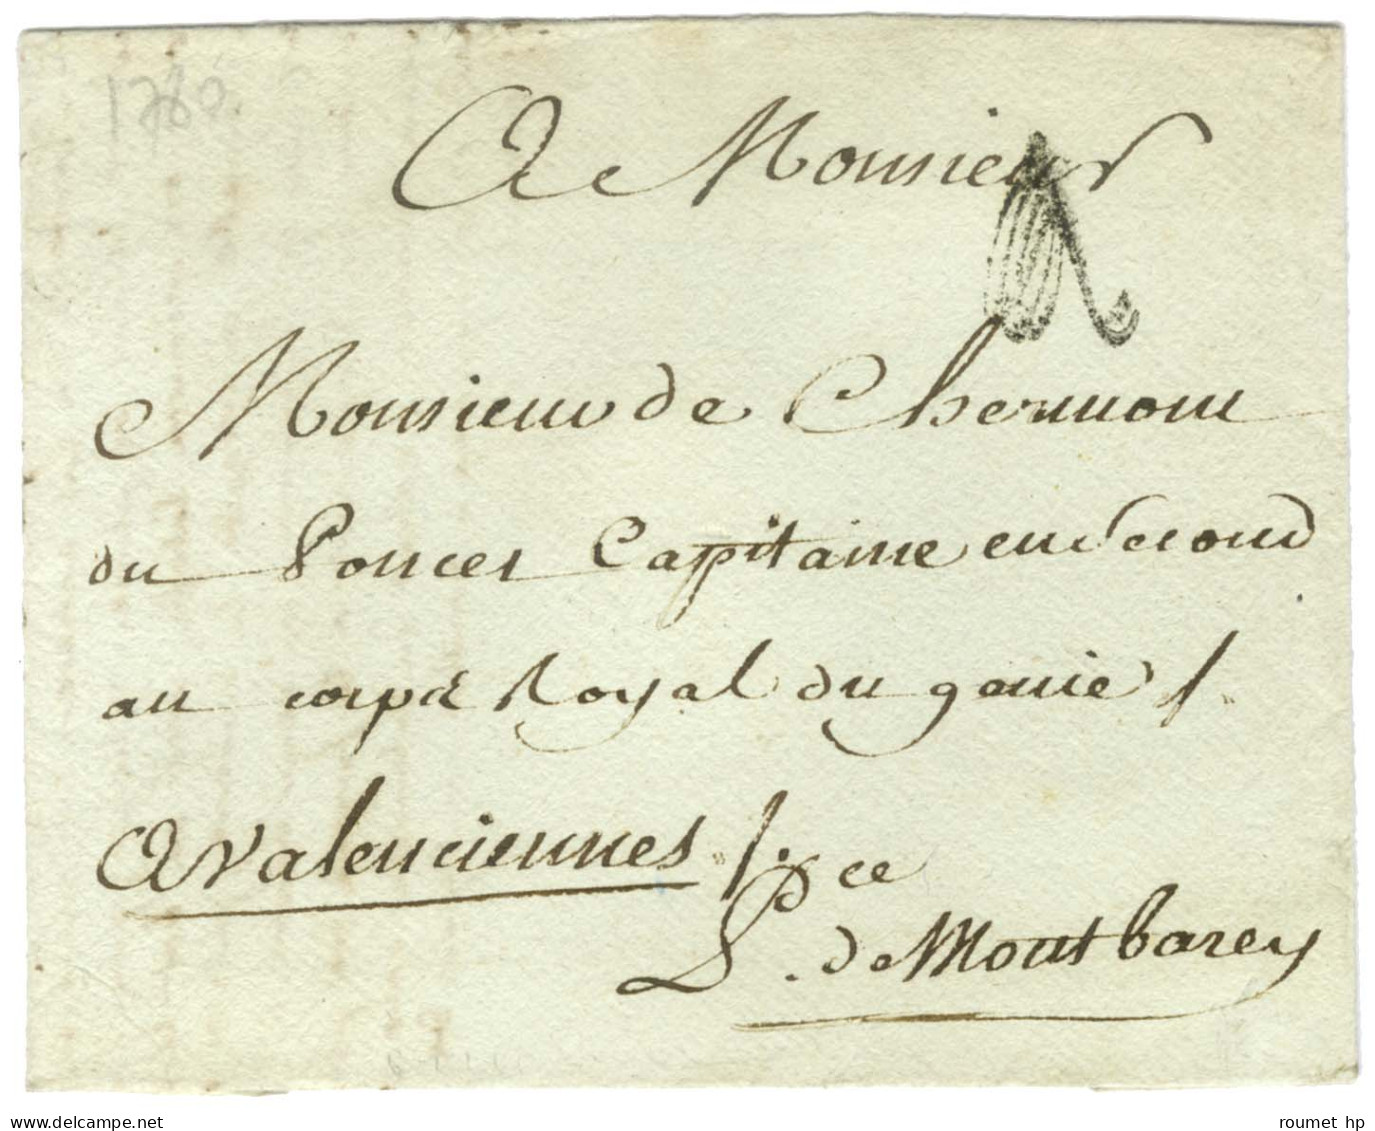 1780.
A Monsieur
Monsieur de Chermont
du Ponces Capitaine en Second
au corps Royal du genie /.
A Valenciennes ./.
P.ce
L. de Montbarey
delcampe.net
roumet hp